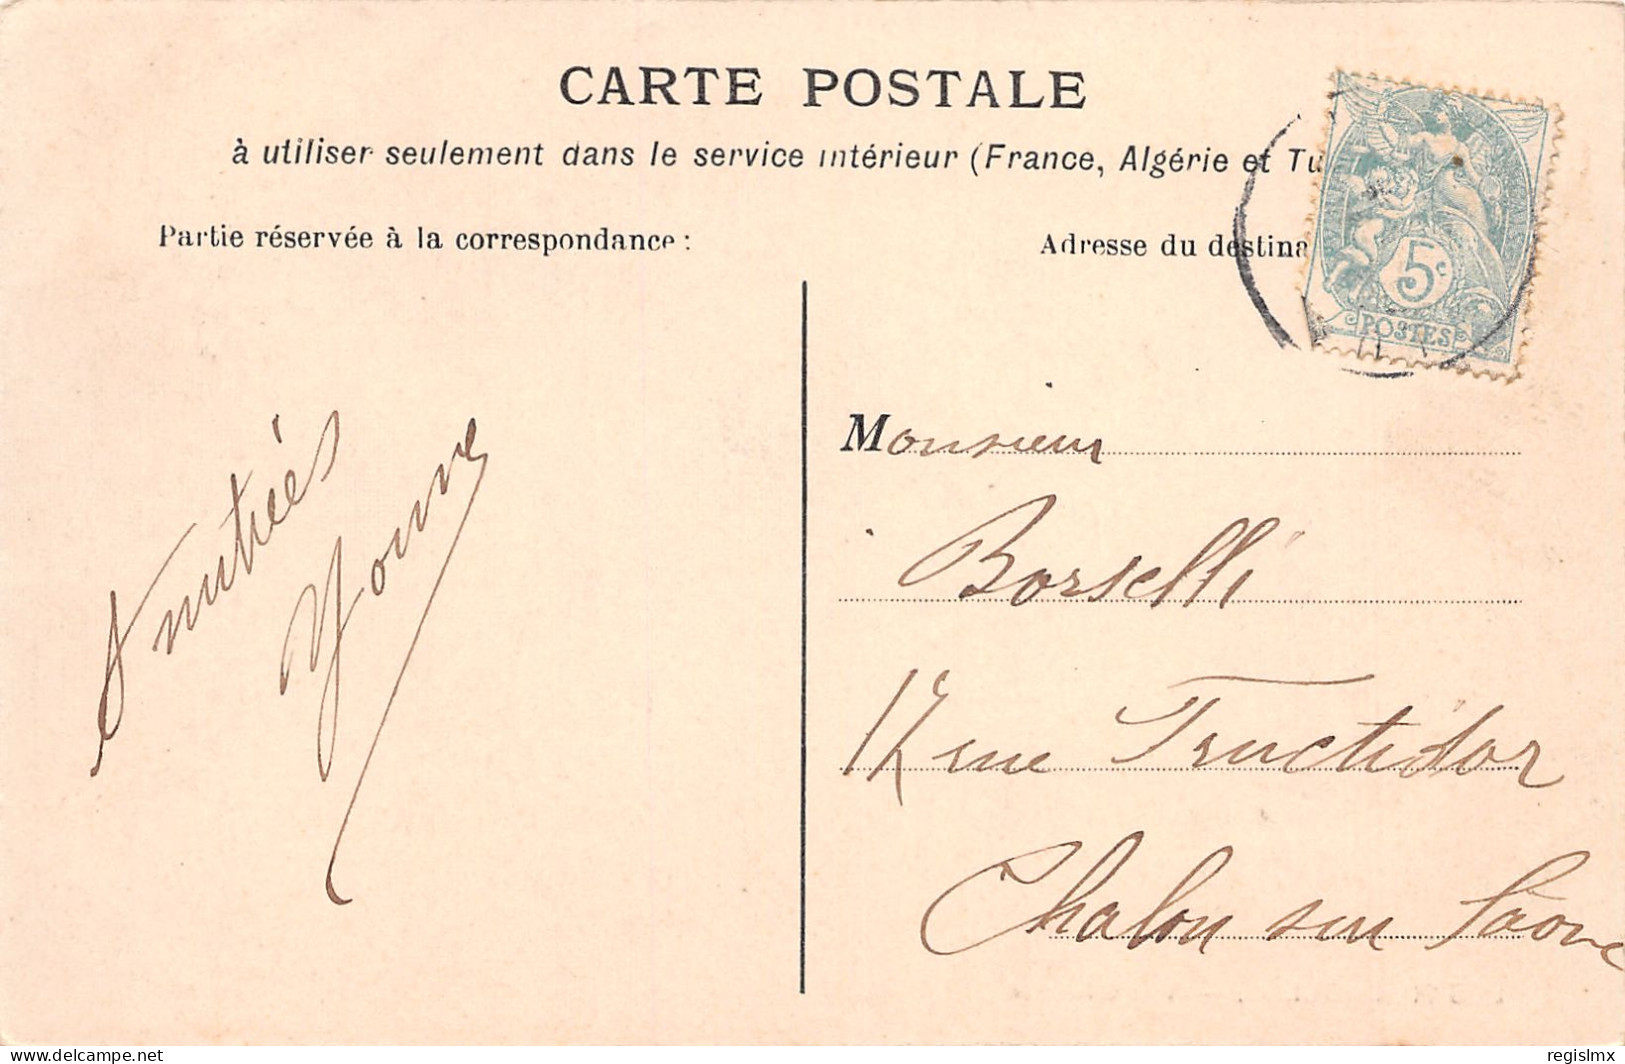 CARTE POSTALE
à utiliser seulement dans le service intérieur (France, Algérie et Tu
Partie réservée à la correspondance :
Adresse du destina
5c
POSTES
Amitiés
Yonne
Monsieur
Borselli
12 rue Fructidor
Chalon sur Saone
delcampe.net
regislmx